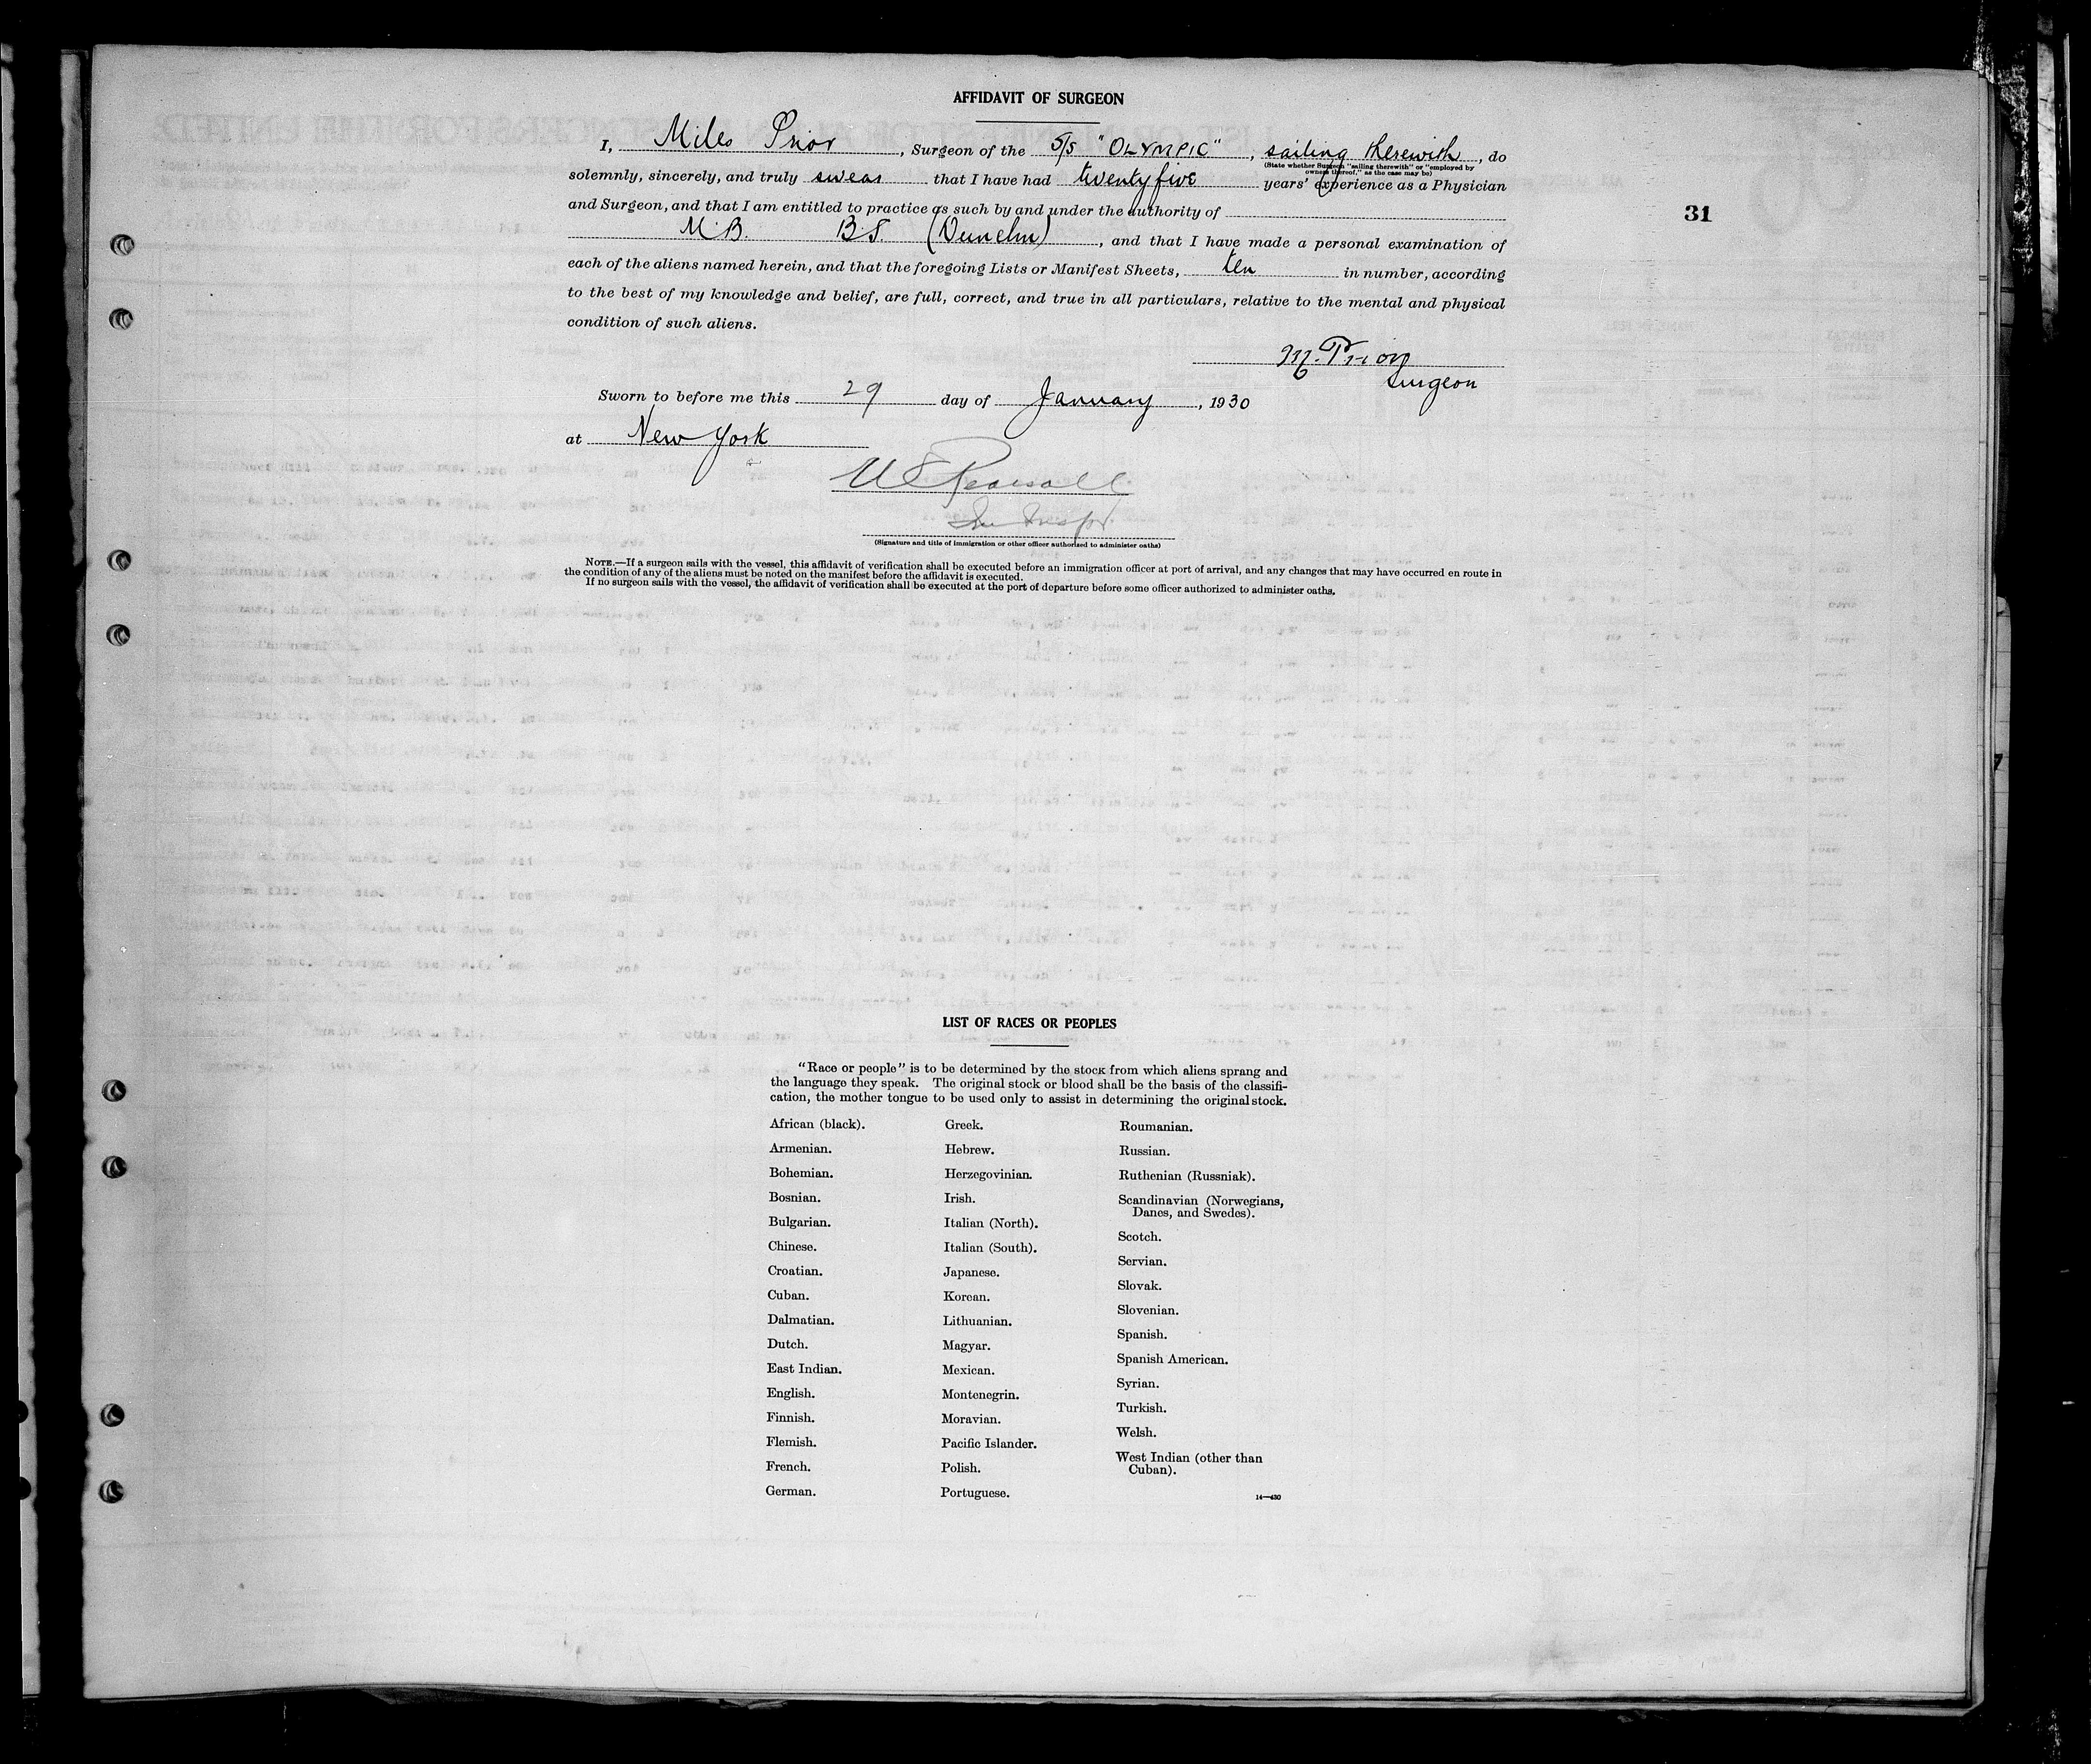 AFFIDAVIT OF SURGEON
I, Miles Prior, Surgeon of the S/S "OLYMPIC", sailing therewith, do
(State whether Surgeon "sailing therewith" or "employed by
owners thereof," as the case may be)
solemnly, sincerely, and truly swear that I have had twenty five years' experience as a Physician
and Surgeon, and that I am entitled to practice as such by and under the authority of
M.B. B.S. (Dunelm), and that I have made a personal examination of
each of the aliens named herein, and that the foregoing Lists or Manifest Sheets, ten in number, according
to the best of my knowledge and belief, are full, correct, and true in all particulars, relative to the mental and physical
condition of such aliens.
31
M. Prior
Surgeon
Sworn to before me this 29 day of January, 1930
at New York
Pearsall
(Signature and title of immigration or other officer authorized to administer oaths)
NOTE.—If a surgeon sails with the vessel, this affidavit of verification shall be executed before an immigration officer at port of arrival, and any changes that may have occurred en route in
the condition of any of the aliens must be noted on the manifest before the affidavit is executed.
If no surgeon sails with the vessel, the affidavit of verification shall be executed at the port of departure before some officer authorized to administer oaths.
LIST OF RACES OR PEOPLES
"Race or people" is to be determined by the stock from which aliens sprang and
the language they speak. The original stock or blood shall be the basis of the classifi-
cation, the mother tongue to be used only to assist in determining the original stock.
African (black).
Armenian.
Bohemian.
Bosnian.
Bulgarian.
Chinese.
Croatian.
Cuban.
Dalmatian.
Dutch.
East Indian.
English.
Finnish.
Flemish.
French.
German.
Greek.
Hebrew.
Herzegovinian.
Irish.
Italian (North).
Italian (South).
Japanese.
Korean.
Lithuanian.
Magyar.
Mexican.
Montenegrin.
Moravian.
Pacific Islander.
Polish.
Portuguese.
Roumanian.
Russian.
Ruthenian (Russniak).
Scandinavian (Norwegians,
Danes, and Swedes).
Scotch.
Servian.
Slovak.
Slovenian.
Spanish.
Spanish American.
Syrian.
Turkish.
Welsh.
West Indian (other than
Cuban).
14—430